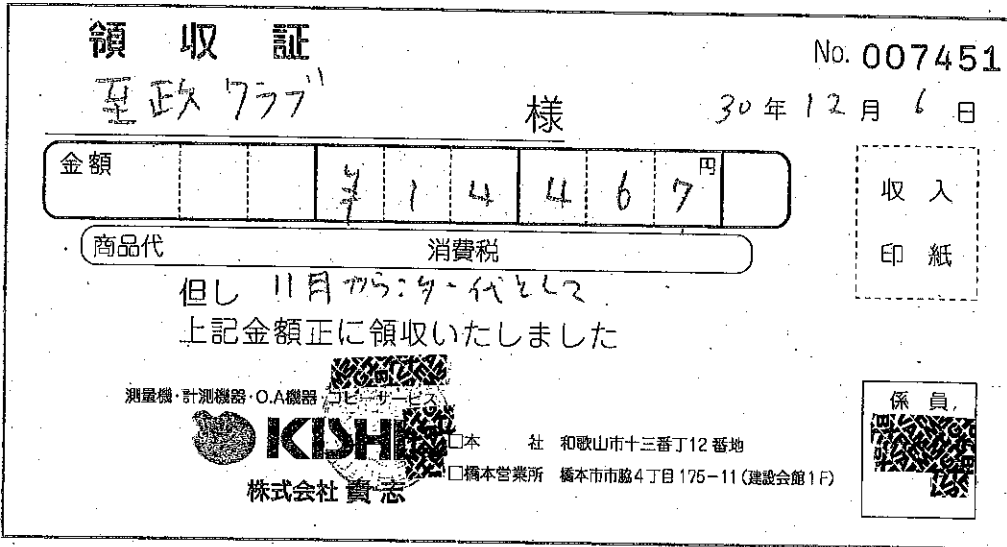 領収証
No. 007451
至政クラブ 様
30年12月6日
金額 ¥14467円
収入
印紙
商品代 消費税
但し 11月カラーコピー代として
上記金額正に領収いたしました
測量機・計測機器・O.A機器・コピーサービス
KISHI
係員
□本 社 和歌山市十三番丁12番地
□橋本営業所 橋本市市脇4丁目175-11(建設会館1F)
株式会社 貴志